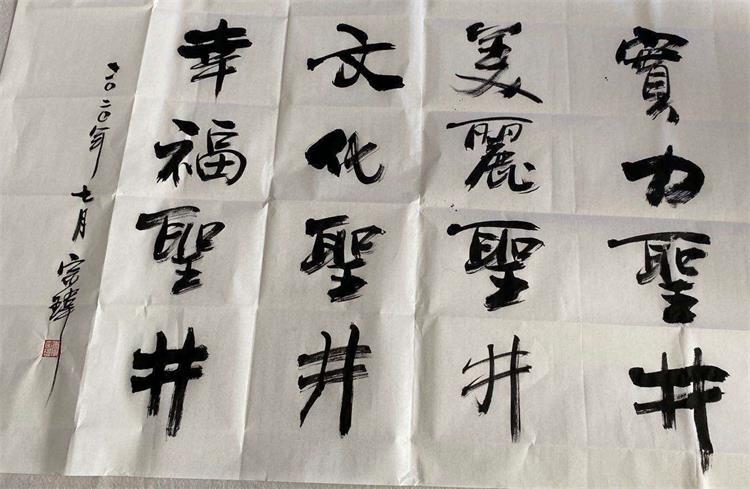 實力聖井
美麗聖井
文化聖井
幸福聖井
二〇二〇年七月